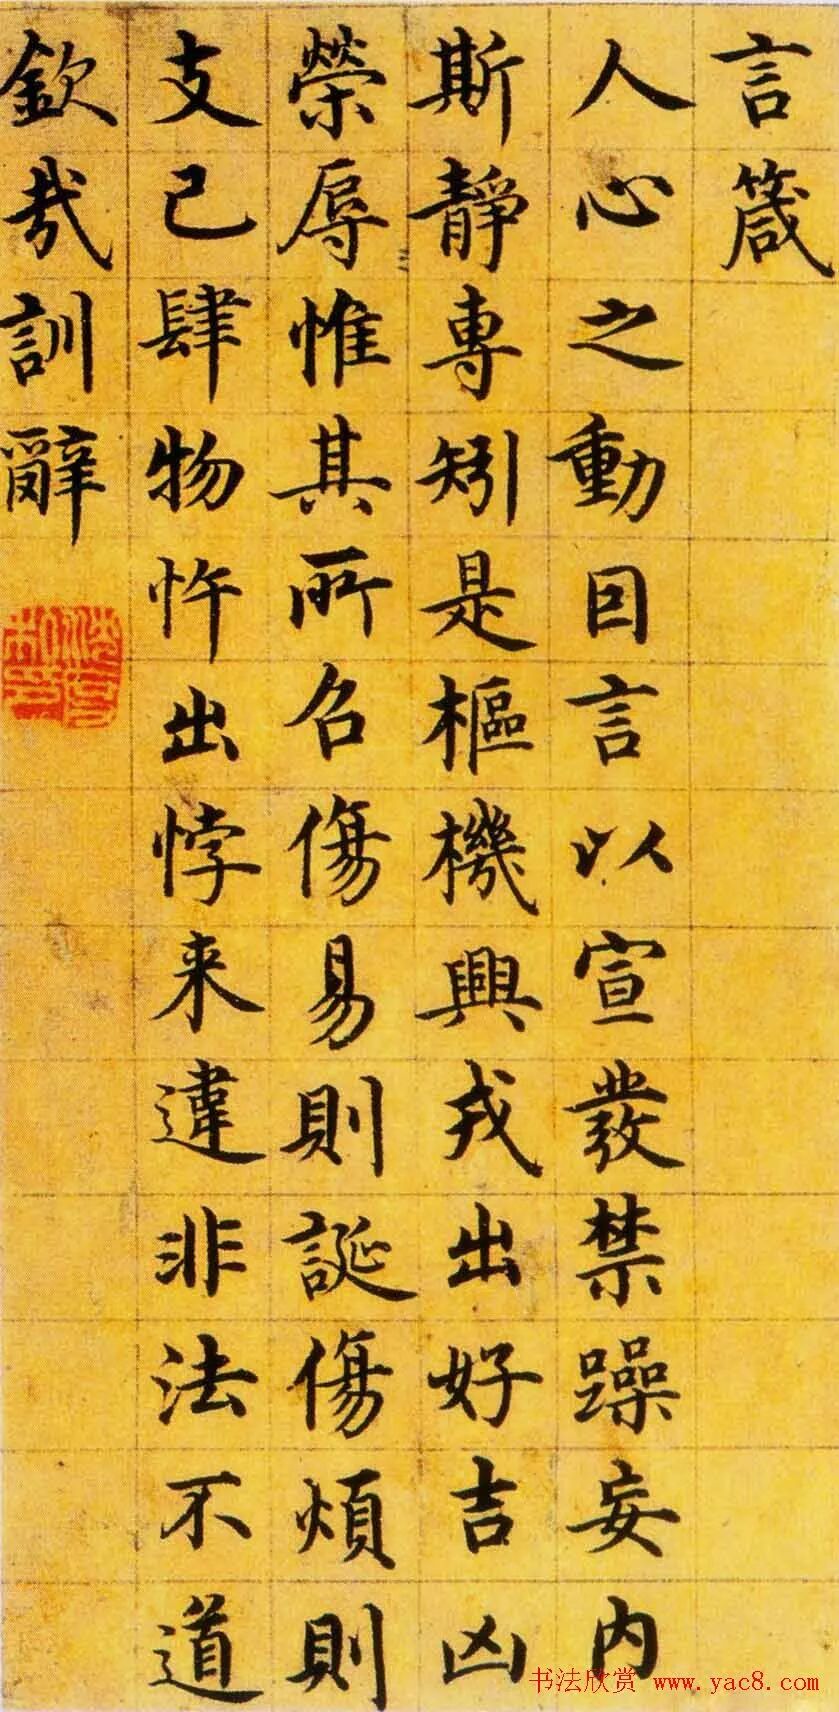 言箴
人心之動因言以宣發禁躁妄內
斯靜專矧是樞機興戎出好吉凶
榮辱惟其所召傷易則誕傷煩則
支己肆物忤出悖来違非法不道
欽哉訓辭
书法欣赏 www.yac8.com